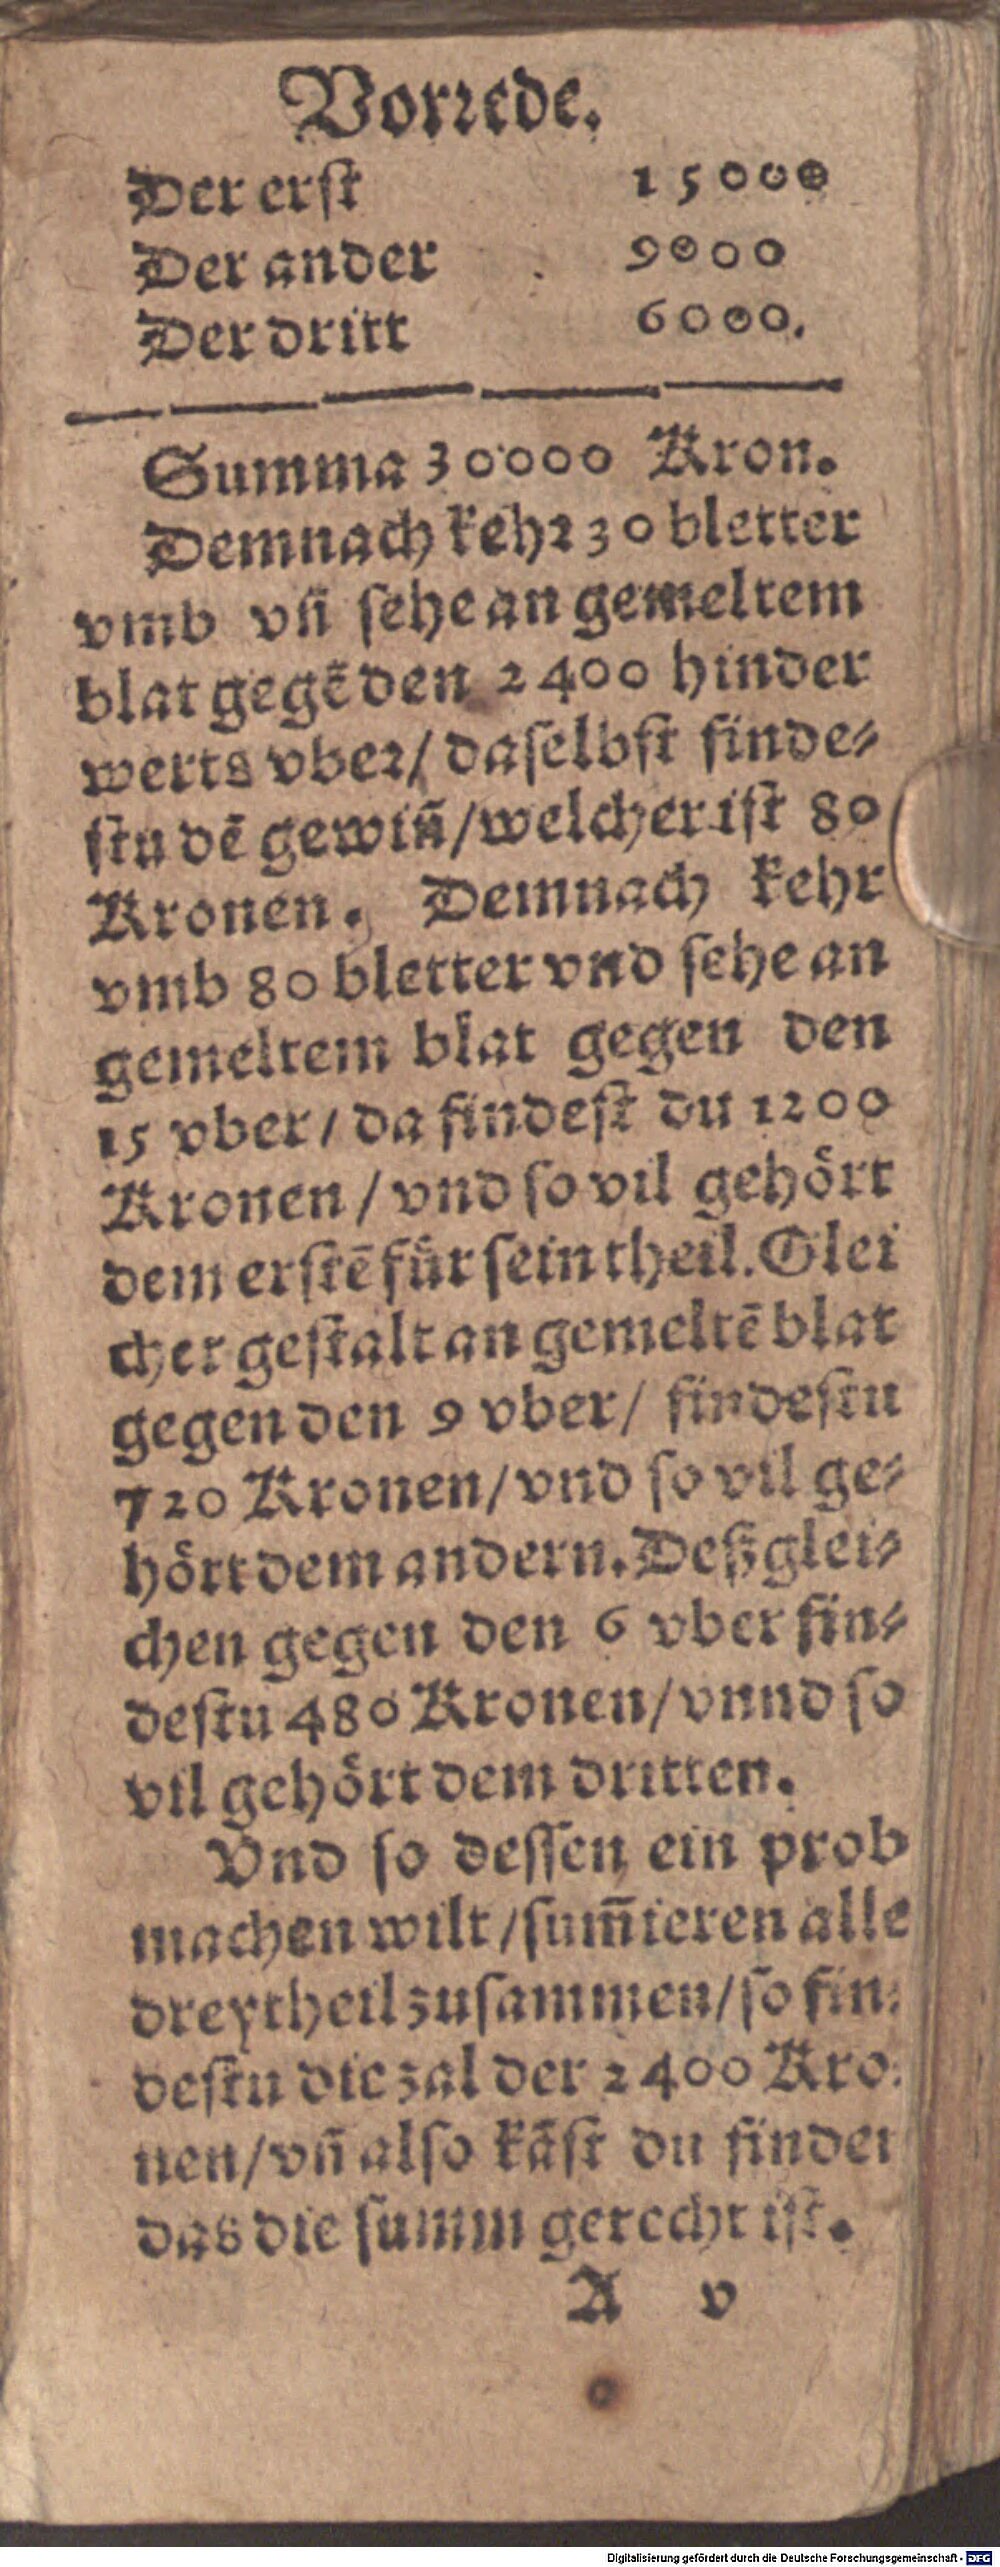 Vorrede.
Der erst 15000
Der ander 9000
Der dritt 6000.
Summa 30000 Kron.
Demnach kehr 30 bletter
vmb vñ sehe an gemeltem
blat gegẽ den 2400 hinder
werts vber/ daselbst finde⸗
stu dẽ gewiñ/welcher ist 80
Kronen. Demnach kehr
vmb 80 bletter vnd sehe an
gemeltem blat gegen den
15 vber/ da findest du 1200
Kronen/ vnd so vil gehoͤrt
dem erstẽ fuͤr sein theil. Glei
cher gestalt an gemeltẽ blat
gegen den 9 vber/ findestu
720 Kronen/vnd so vil ge⸗
hoͤrt dem andern. Deßglei⸗
chen gegen den 6 vber fin⸗
destu 480 Kronen/vnnd so
vil gehoͤrt dem dritten.
Vnd so dessen ein prob
machen wilt/sum̃ieren alle
drey theil zusammen/so fin⸗
destu die zal der 2400 Kro⸗
nen/vñ also kãst du finden
das die summ gerecht ist.
A v
Digitalisierung gefördert durch die Deutsche Forschungsgemeinschaft - DFG